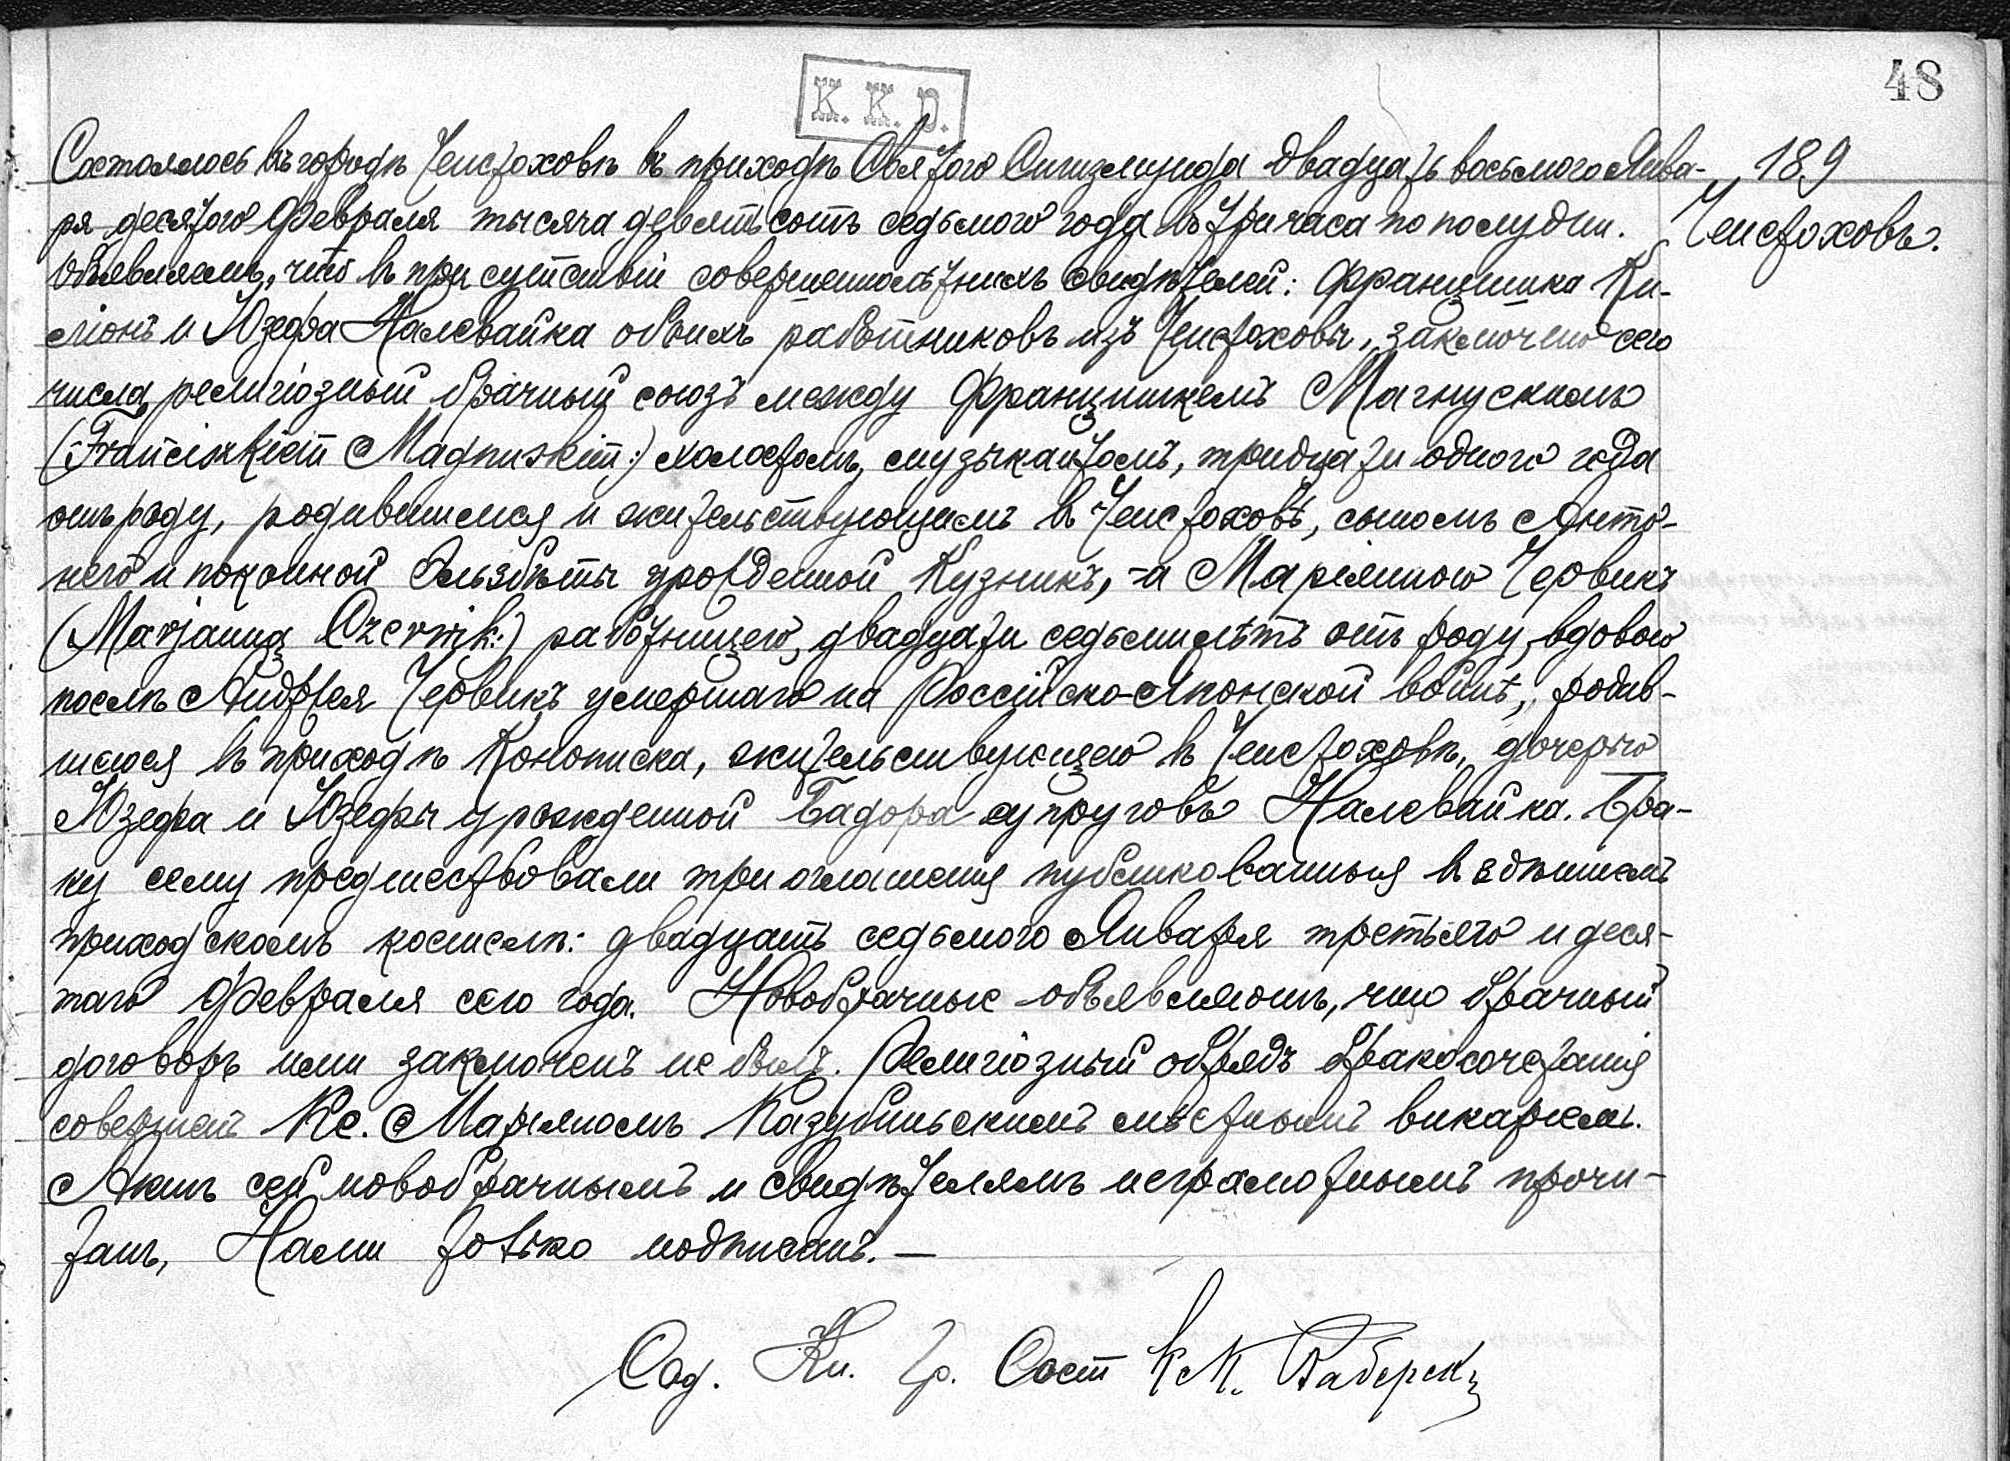 48
К. К. D.
Состоялось въ городѣ Ченстоховѣ въ приходѣ Святого Сигизмунда двадцать восьмого Янва-
189
ря десятого Февраля тысяча девятьсотъ седьмого года въ три часа по полудни.
Ченстоховъ.
Объявляемъ, что въ присутствіи совершеннолѣтнихъ свидѣтелей: Францишка Ки-
сліонъ и Юзефа Налевайка обоихъ работниковъ изъ Ченстоховы, заключено сего
числа религіозный брачный союзъ между Францишкемъ Магнускимъ
(Franciszkiem Magnuskim:) холостомъ, музыкантомъ, тридцати одного года
отъ роду, родившимся и жительствующимъ въ Ченстоховѣ, сыномъ Анто-
него и покойной Эльзбѣты урожденной Кузникъ, - а Маріянною Червикъ
(Marjanną Czerwik:) работницею, двадцати седьми лѣтъ отъ роду, вдовою
послѣ Андрея Червикъ умершаго на Россійско-Японской войнѣ, родив-
шеюся въ приходѣ Конописка, жительствующею въ Ченстоховѣ, дочерью
Юзефа и Юзефы урожденной Бадора супруговъ Налевайка. Бра-
ку сему предшествовали три оглашения публикованныя въ здѣшнемъ
приходскомъ костелѣ: двадцать седьмого Января третьяго и деся-
таго Февраля сего года. Новобрачные объявляютъ, что брачный
договоръ ими заключенъ не былъ. Религіозный обрядъ бракосочетанія
совершенъ Кс. Марьяномъ Казубиньскимъ мѣстнымъ викаріемъ.
Актъ сей новобрачнымъ и свидѣтелямъ неграмотнымъ прочи-
танъ, Нами только подписанъ. —
Сод. Кн. Гр. Сост